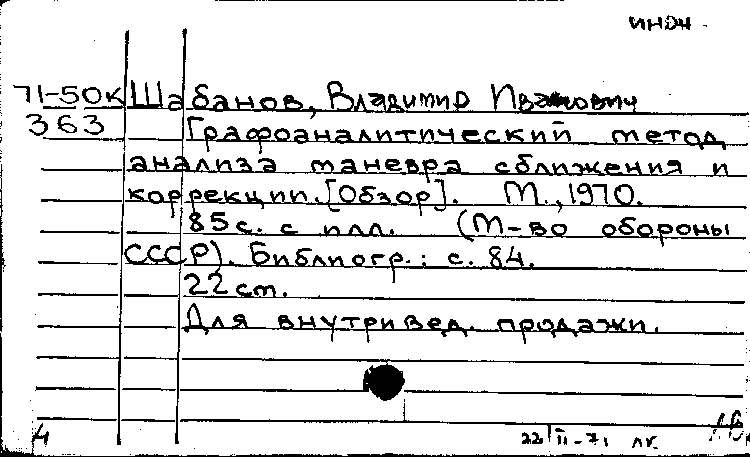 ИНОЧ
71-50К Шабанов, Владимир Иванович
363 Графоаналитический метод
анализа маневра сближения и
коррекции. [Обзор]. М., 1970.
85 с. с илл. (М-во обороны
СССР). Библиогр.: с. 84.
22 см.
Для внутривед. продажи.
4 22/II-71 ЛК.